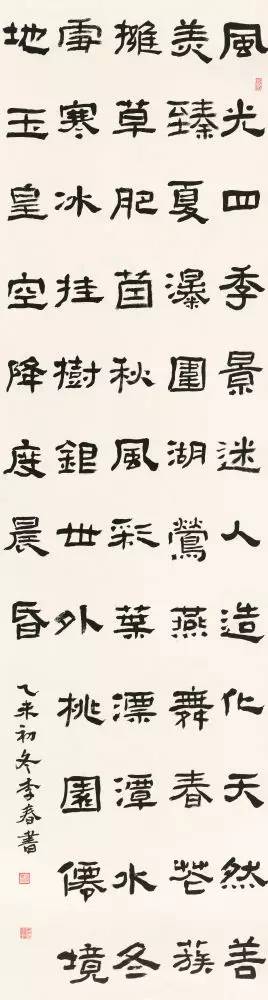 風光四季景迷人造化天然善
羙臻夏瀑圍湖鶯燕舞春花蔟
擁草肥茵秋風彩葉漂潭水冬
雪寒冰挂樹銀世外桃園僊境
地玉皇空降度晨昏
乙未初冬李春書